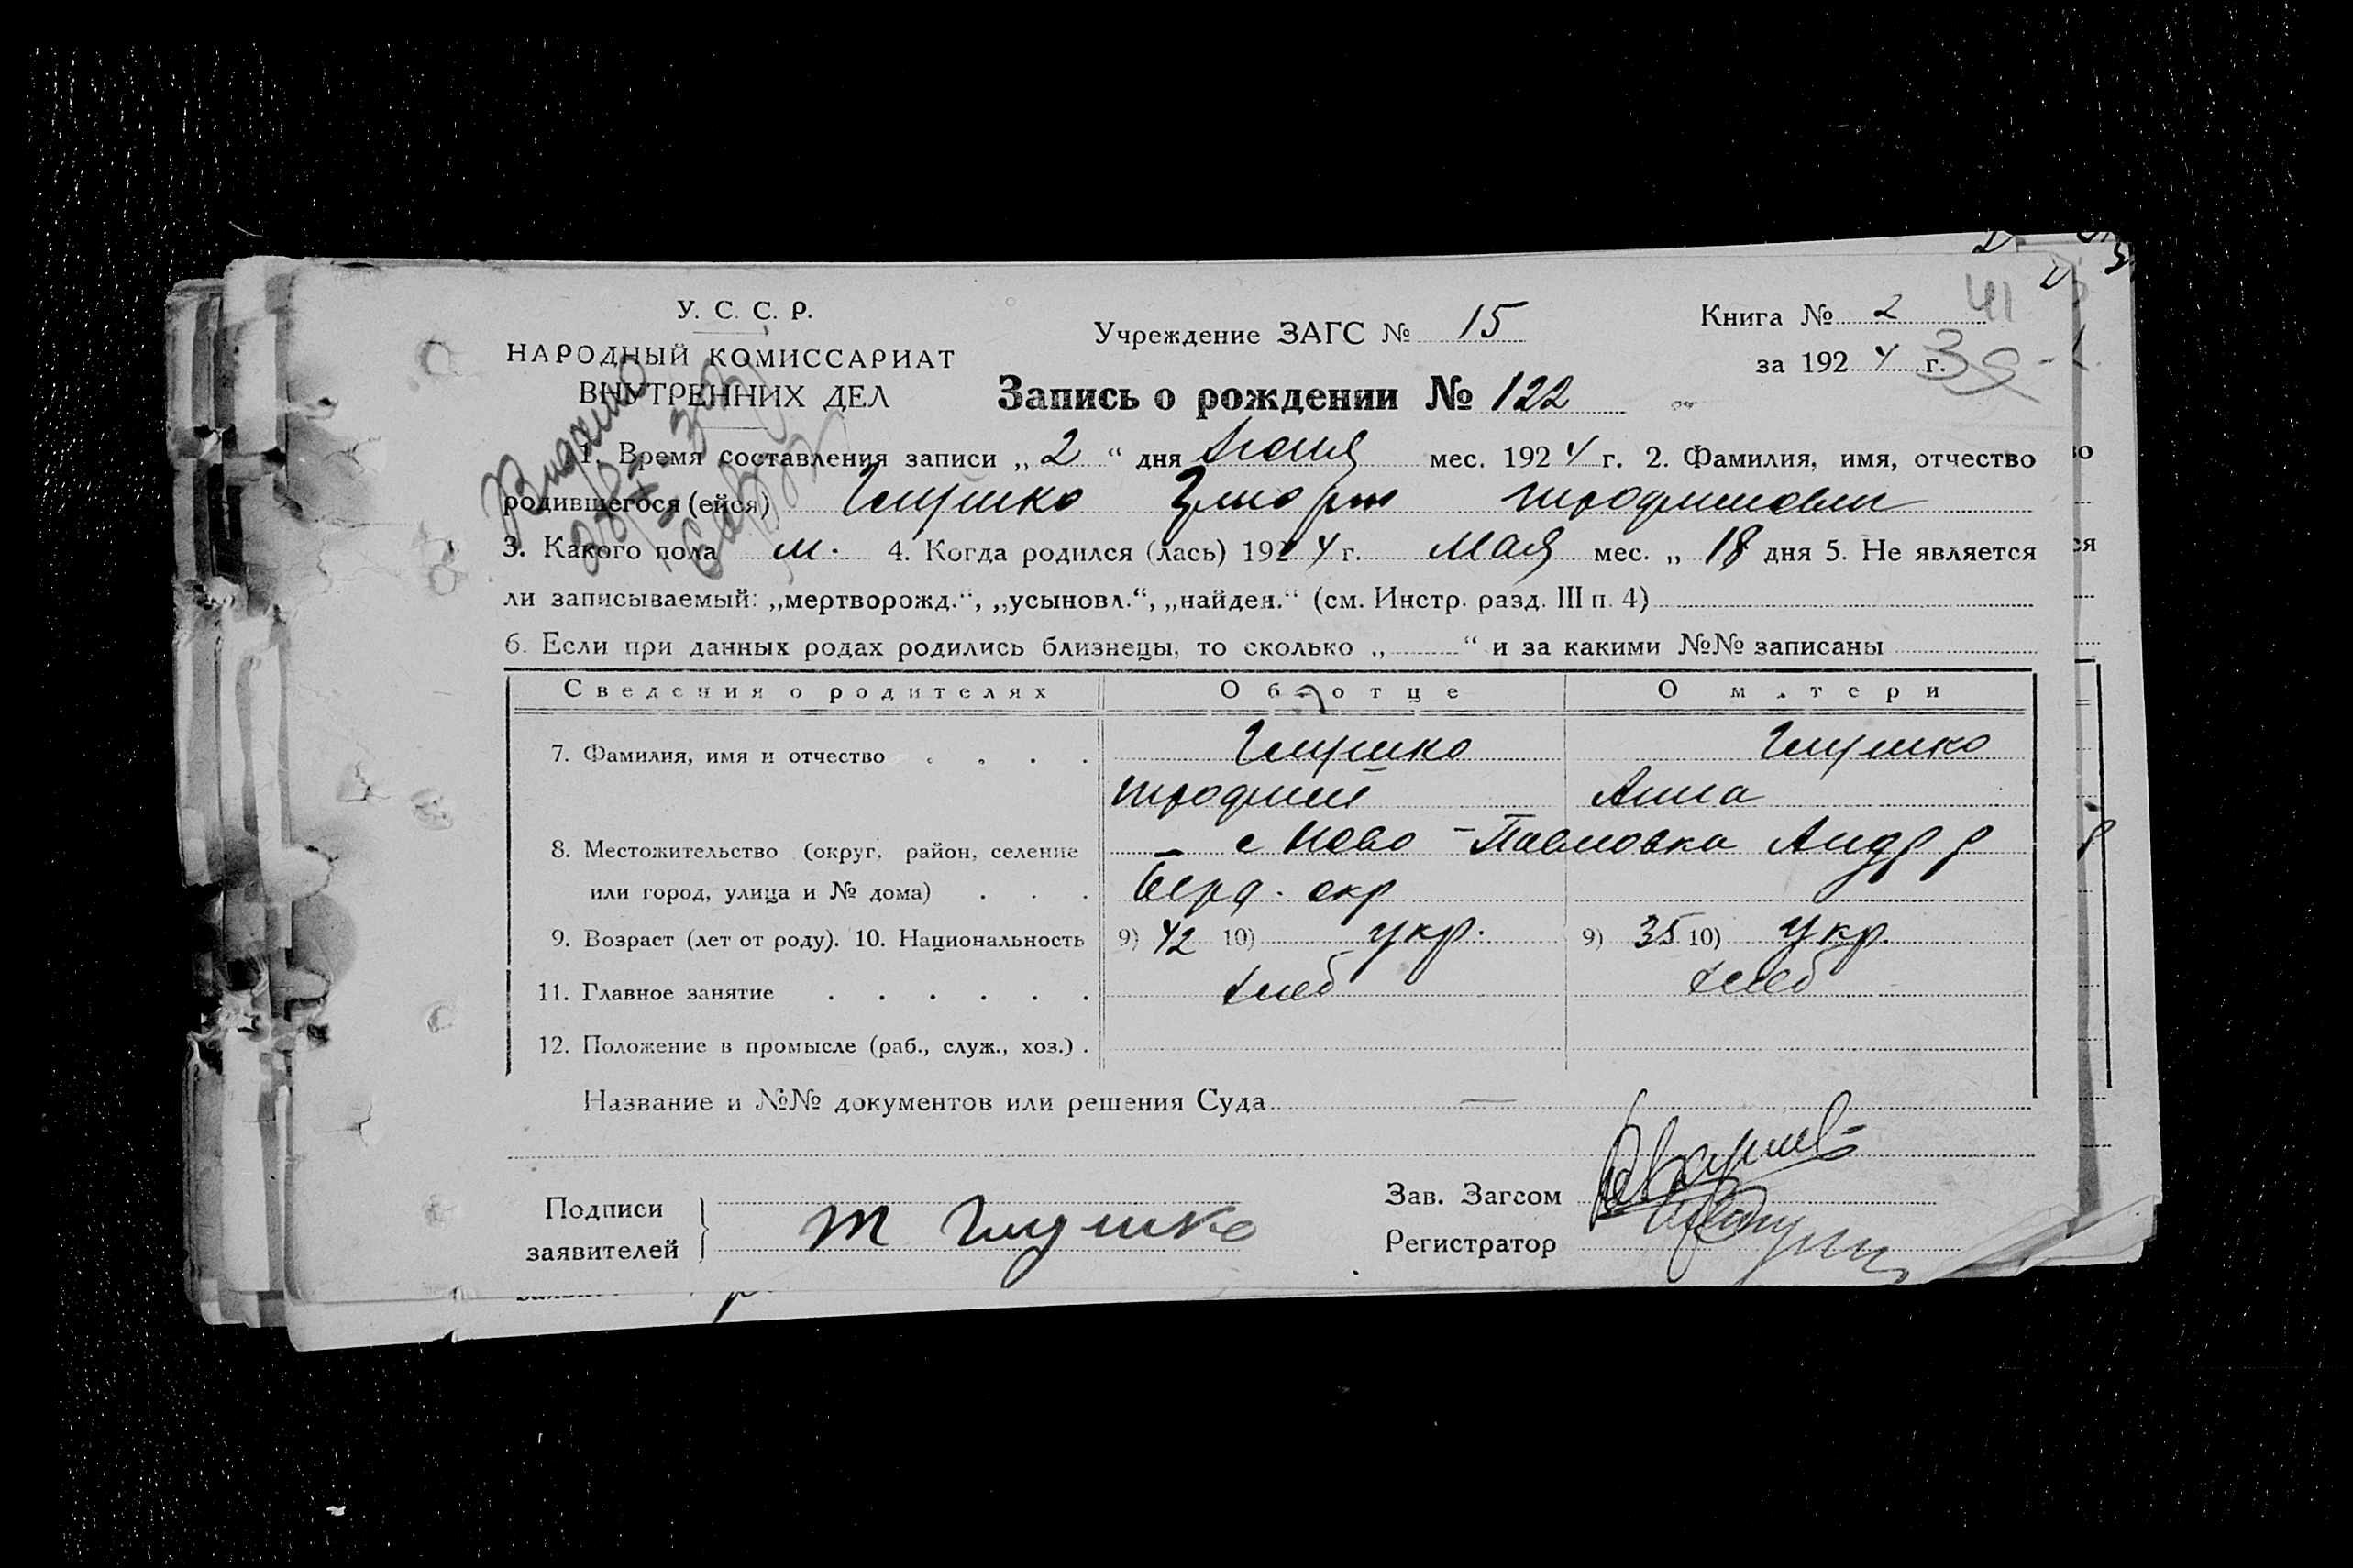 У. С. С. Р.
НАРОДНЫЙ КОМИССАРИАТ
ВНУТРЕННИХ ДЕЛ
Учреждение ЗАГС № 15
Книга № 2
41
за 1924 г.
39
Запись о рождении № 122
1. Время составления записи „ 2 “ дня Июня мес. 1924 г. 2. Фамилия, имя, отчество
родившегося (ейся) Глушко Трофимович
3. Какого пола м. 4. Когда родился (лась) 1924 г. Мая мес. „ 18 дня 5. Не является
ли записываемый: „мертворожд.“, „усыновл.“, „найден.“ (см. Инстр. разд. III п. 4)
6. Если при данных родах родились близнецы, то сколько „ “ и за какими №№ записаны
Сведения о родителях Об отце О матери
7. Фамилия, имя и отчество . . . . Глушко Глушко
Трофим Анна
8. Местожительство (округ, район, селение с Ново-Павловка Анд р р
или город, улица и № дома) . . . Берд. окр
9. Возраст (лет от роду). 10. Национальность 9) 42 10) укр. 9) 35 10) укр.
11. Главное занятие . . . . . . хлеб хлеб
12. Положение в промысле (раб., служ., хоз.) .
Название и №№ документов или решения Суда —
Подписи
заявителей
Т Глушко
Зав. Загсом
Регистратор